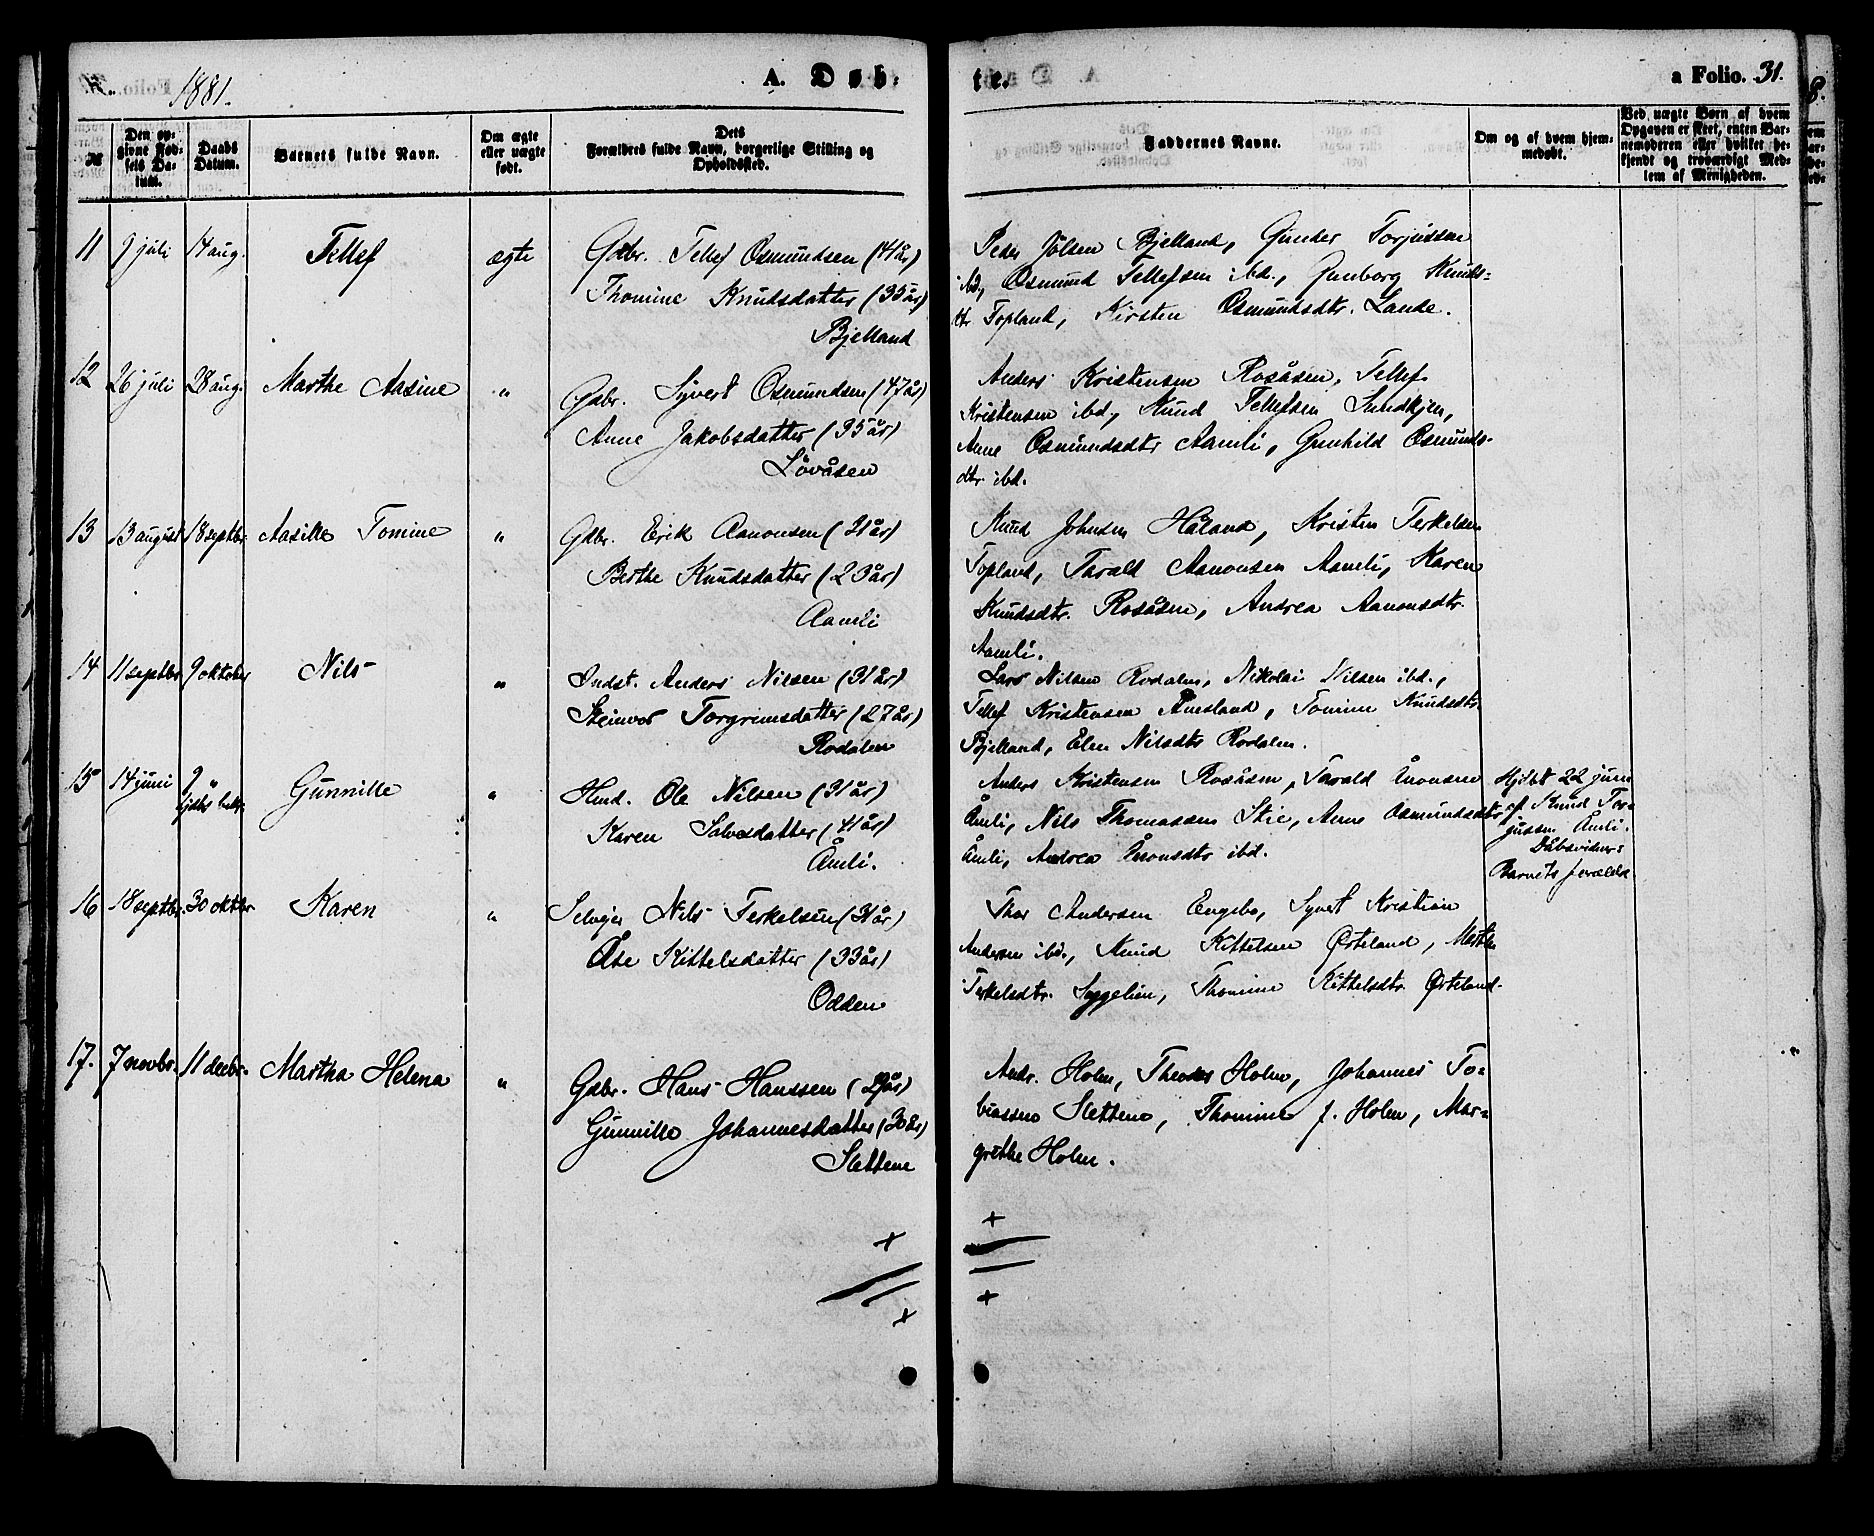 1881.
A. Døb-
te.
a Folio. 31.
№
Den op-
givne Fød-
sels Da-
tum.
Daabs
Datum.
Barnets fulde Navn.
Om ægte
eller uægte
født.
Dets
Forældres fulde Navn, borgerlige Stilling og
Opholdssted.
Faddernes Navne.
Om og af hvem hjem-
medøbt.
Ved uægte Børn af hvem
Opgaven er skeet, enten Bar-
nemoderen eller hvilket be-
kjendt og troværdigt Med-
lem af Menigheden.
11 9 juli 14 aug. Tellef ægte Gdbr. Tellef Osmundsen (44 år)
Thomine Knudsdatter (35 år)
Bjelland
Peder Jølsen Bjelland, Gunder Torjussen
ibd, Osmund Tellefsen ibd., Gunborg Knuds-
dtr Topland, Kirsten Osmundsdtr. Lande.
12 26 juli 28 aug. Marthe Aasine " Gdbr. Syvert Osmundsen (47 år)
Anne Jakobsdatter (35 år)
Løvåsen
Anders Kristensen Rosåsen, Tellef
Kristensen ibd, Knud Tellefsen Sundkjen,
Anne Osmundsdtr Aamli, Gunhild Osmunds-
dtr ibd.
13 13 august 18 septbr. Aasille Tomine " Gdbr. Erik Aanonsen (31 år)
Berthe Knudsdatter (23 år)
Aamli
Knud Johnsen Håland, Kristen Terkelsen
Topland, Tarald Aanonsen Aamli, Karen
Knudsdtr. Rosåsen, Andrea Aanonsdtr.
Aamli.
14 11 septbr 9 oktober Nils " Indst. Anders Nilsen (31 år)
Steinvor Torgrimsdatter (27 år)
Rodalen
Lars Nilsen Rodalen, Nikolai Nilsen ibd.,
Tellef Kristensen Åmesland, Tomine Knudsdtr.
Bjelland, Elen Nilsdtr Rodalen.
15 14 juni 9 " Gunnille " Hmd. Ole Nilsen (31 år)
Karen Salvesdatter (41 år)
Åmli.
Anders Kristensen Rosåsen, Tarald Ånonsen
Åmli, Nils Thomassen Stie, Anne Osmundsdtr
Åmli, Andrea Ånonsdtr ibd.
Hjdbt 22 juni
af Knud Tor-
jussen Åmli.
Dåbsvidner:
Barnets forældre
16 18 septbr. 30 oktbr Karen " Selvejer Nils Terkelsen (31 år)
Åse Kittelsdatter (33 år)
Odden
Thor Andersen Engebo, Syvert Kristian
Andersen ibd., Knud Kittelsen Ørteland, Marthe
Terkelsdtr. Seggelien, Thomine Kittelsdtr. Ørteland.
17. 7 novbr. 11 decbr. Martha Helena " Gdbr. Hans Hanssen (29 år)
Gunnille Johannesdatter (30 år)
Slettene
Andr. Holm, Theodor Holm, Johannes To-
biassen Slettene, Thomine J. Holm, Mar-
grethe Holm.